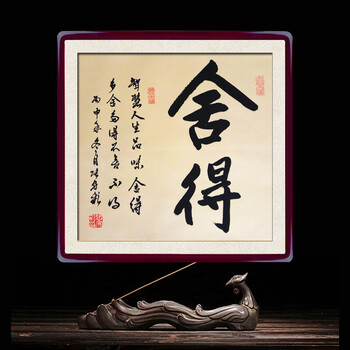 舍得
智慧人生品味舍得
多舍多得不舍不得
丙申年冬月